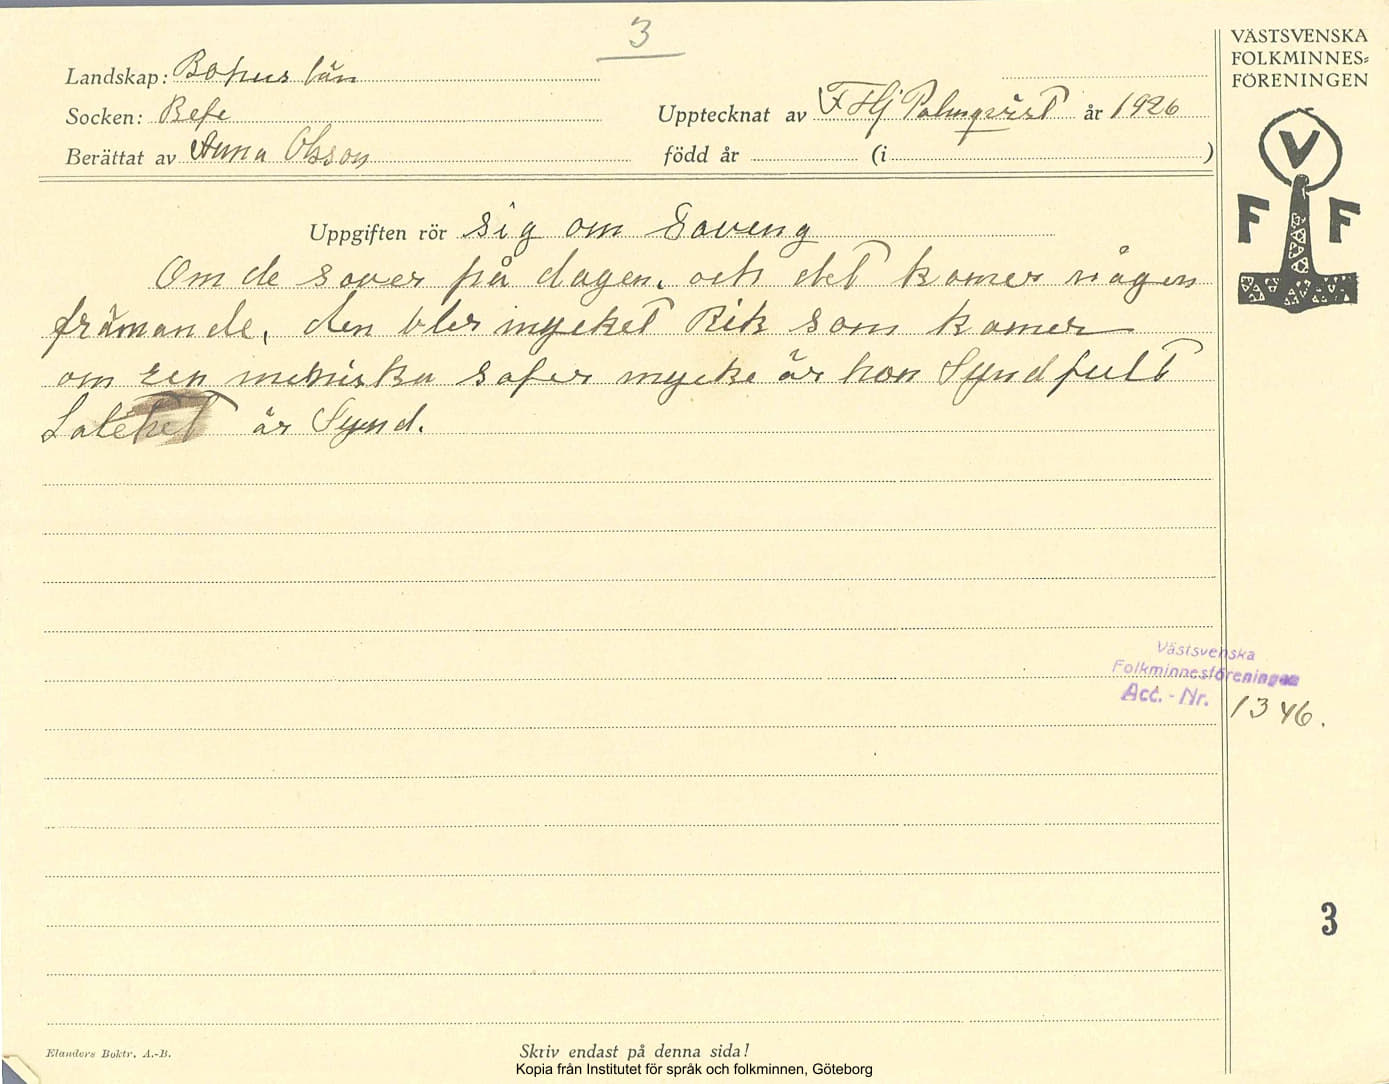 3
VÄSTSVENSKA
FOLKMINNES-
FÖRENINGEN
Landskap: Bohus län
Socken: Befe
Upptecknat av F Hj Palmqvist år 1926
Berättat av Anna Olsson
född år (i )
V
F F
Uppgiften rör sig om Soveng
Om de sover på dagen. och det komer någen
främande, den bler mycket Rik som komer
om en meniska safer mycke är hon Syndfult
Latehet är Synd.
Västsvenska
Folkminnesföreningen
Acc. - Nr. 1346.
3
Elanders Boktr. A.-B.
Skriv endast på denna sida!
Kopia från Institutet för språk och folkminnen, Göteborg